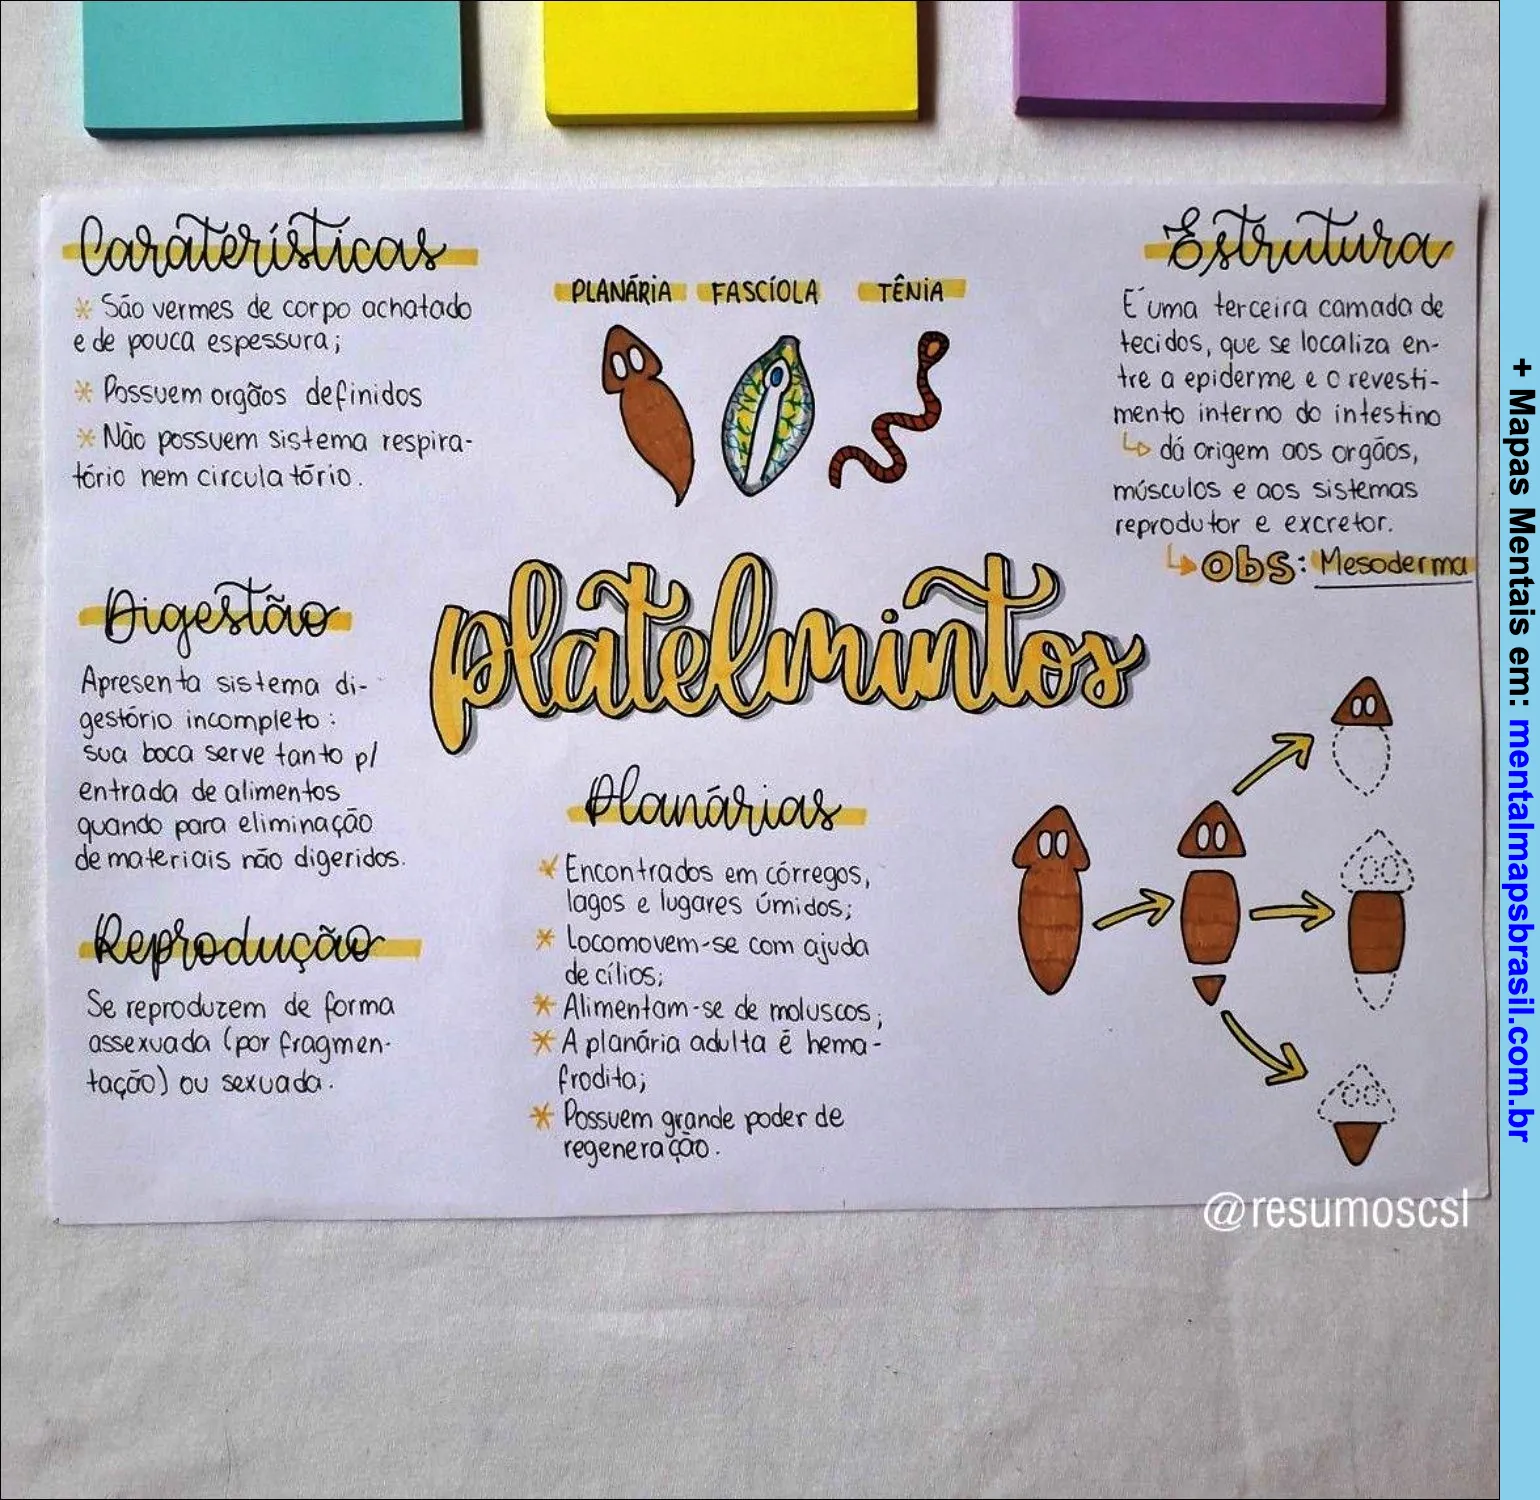 Caraterísticas
* São vermes de corpo achatado
e de pouca espessura;
* Possuem orgãos definidos
* Não possuem sistema respira-
tório nem circulatório.
PLANÁRIA FASCÍOLA TÊNIA
Estrutura
É uma terceira camada de
tecidos, que se localiza en-
tre a epiderme e o revesti-
mento interno do intestino
↳ dá origem aos orgãos,
músculos e aos sistemas
reprodutor e excretor.
↳ obs: Mesoderma
platelmintos
Digestão
Apresenta sistema di-
gestório incompleto:
sua boca serve tanto p/
entrada de alimentos
quando para eliminação
de materiais não digeridos.
Reprodução
Se reproduzem de forma
assexuada (por fragmen-
tação) ou sexuada.
Planárias
* Encontrados em córregos,
lagos e lugares úmidos;
* Locomovem-se com ajuda
de cílios;
* Alimentam-se de moluscos;
* A planária adulta é hema-
frodita;
* Possuem grande poder de
regeneração.
@resumoscsl
+ Mapas Mentais em: mentalmapsbrasil.com.br